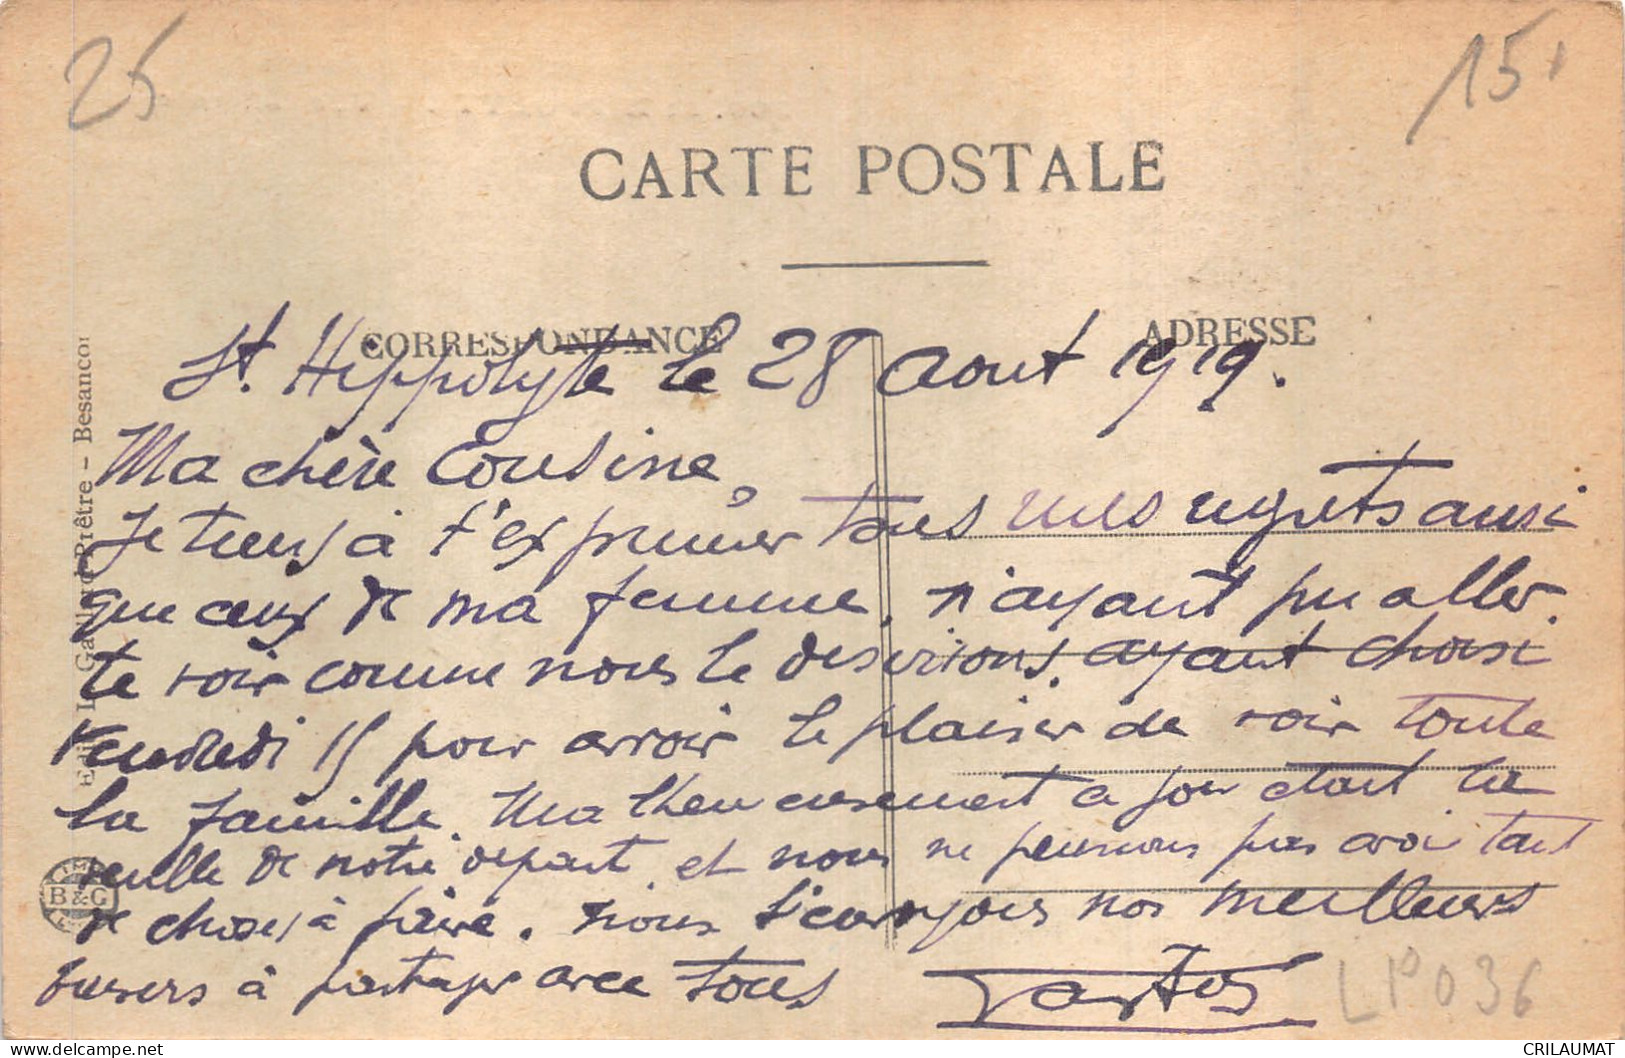 25
15
CARTE POSTALE
CORRESPONDANCE
ADRESSE
St. Hippolyte le 28 Aout 1919.
Ma chère Cousine,
Je tiens à t'exprimer tous mes regrets ausi
que ceux de ma femme, n'ayant pu aller
te voir comme nous le desirions, ayant choisi
Vendredi 15 pour avoir le plaisir de voir toute
la famille. Malheureusement ce jour etait la
veille de notre depart et nous ne pensions pas avoir tant
de choses à faire. nous t'envoyons nos meilleurs
baisers à partager avec tous
Gaston
LP 036
Edit. L. Gaillard-Prêtre - Besançon
B & G
CRILAUMAT